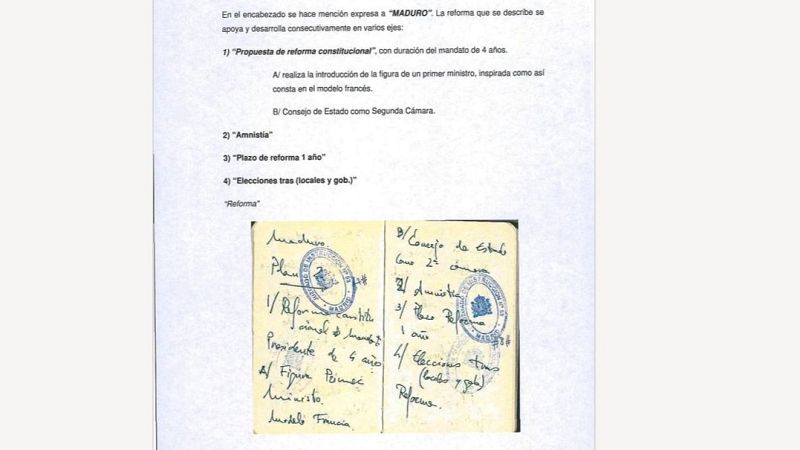 En el encabezado se hace mención expresa a “MADURO”. La reforma que se describe se
apoya y desarrolla consecutivamente en varios ejes:
1) “Propuesta de reforma constitucional”, con duración del mandato de 4 años.
A/ realiza la introducción de la figura de un primer ministro, inspirada como así
consta en el modelo francés.
B/ Consejo de Estado como Segunda Cámara.
2) “Amnistía”
3) “Plazo de reforma 1 año”
4) “Elecciones tras (locales y gob.)”
“Reforma”
Maduro.
Plan
1/ Reforma constitu
cional Mandato
Presidente de 4 años
A/ Figura Primer
Ministro.
Modelo Francia.
B/ Consejo de Estado
como 2ª cámara
2/ Amnistía
3/ Plazo Reforma
1 año
4/ Elecciones tras
(locales y gob)
Reforma.
JUZGADO DE INSTRUCCIÓN Nº
MADRID
JUZGADO DE INSTRUCCIÓN Nº
MADRID